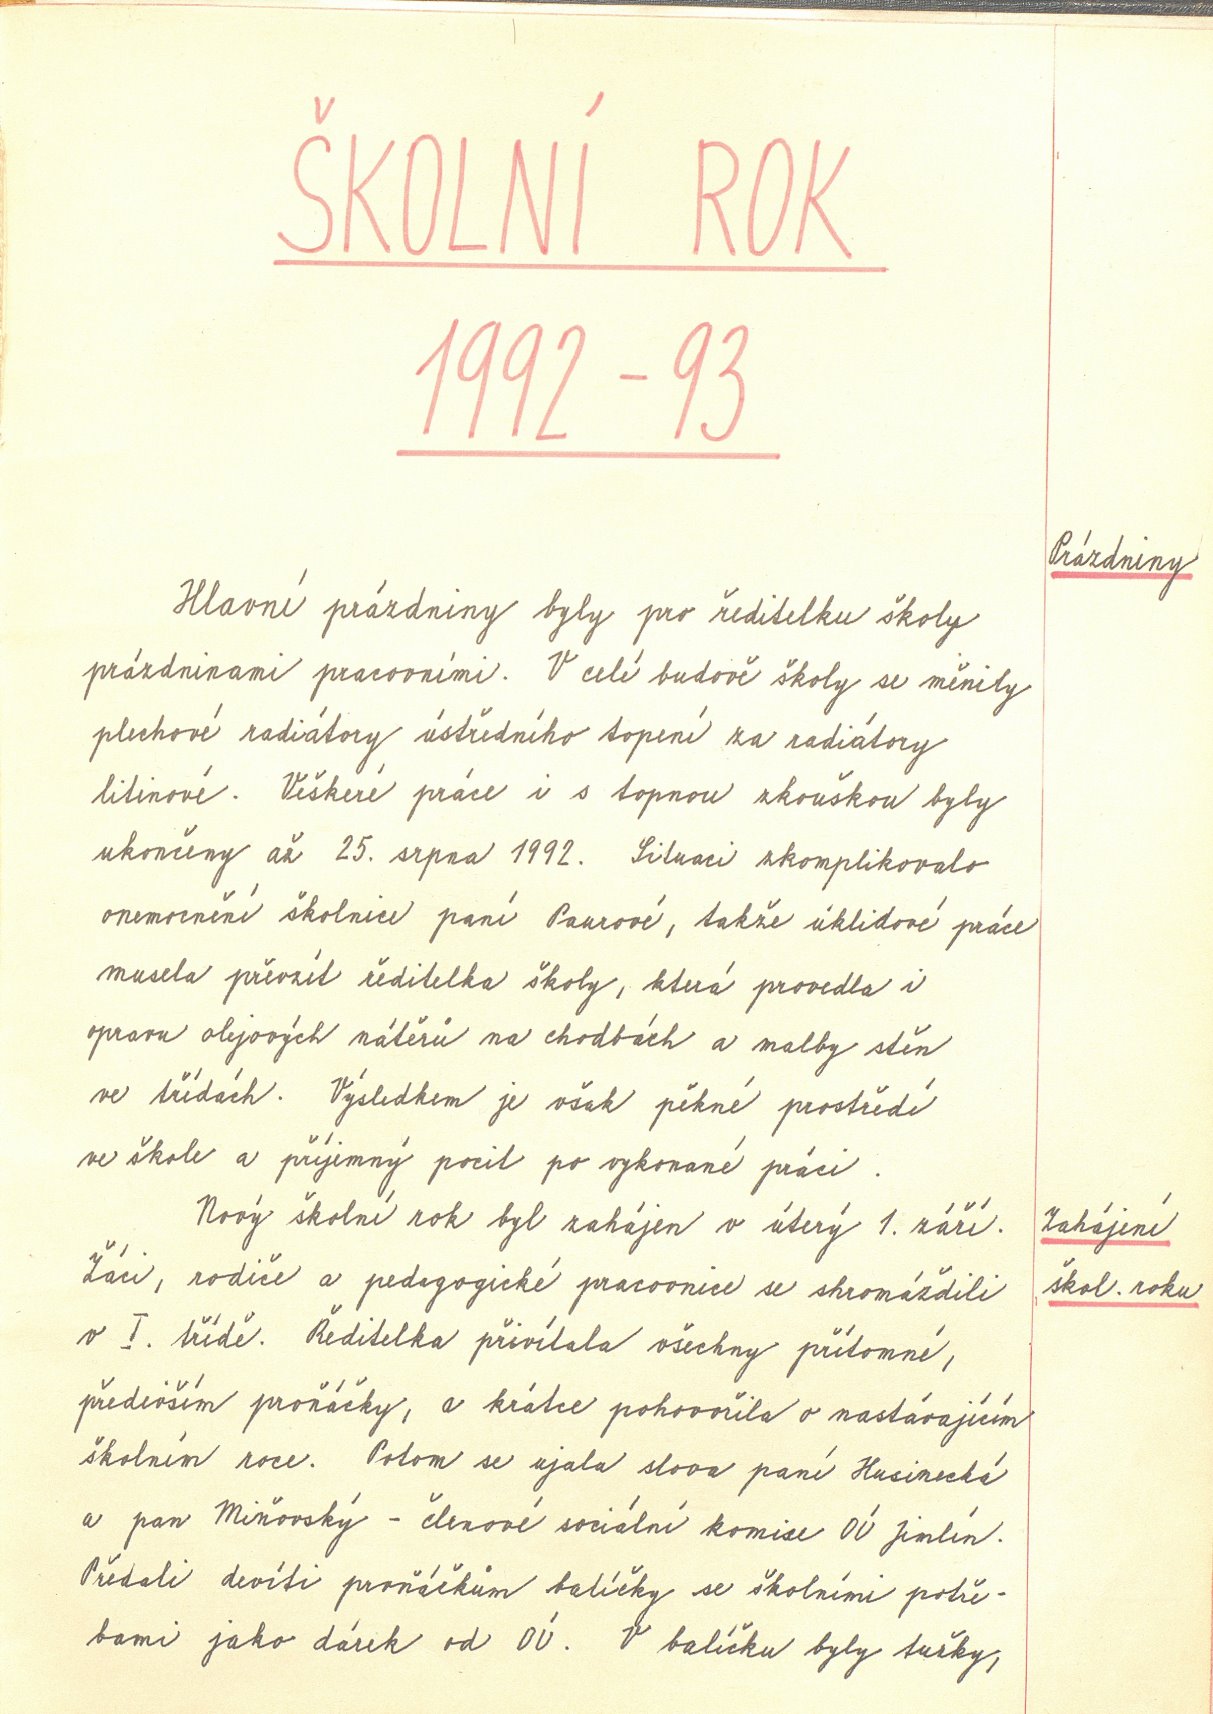 ŠKOLNÍ ROK
1992 - 93
Prázdniny
Hlavní prázdniny byly pro ředitelku školy
prázdninami pracovními. V celé budově školy se měnily
plechové radiátory ústředního topení za radiátory
litinové. Veškeré práce i s topnou zkouškou byly
ukončeny až 25. srpna 1992. Situaci zkomplikovalo
onemocnění školnice paní Paurové, takže úklidové práce
musela převzít ředitelka školy, která provedla i
opravu olejových nátěrů na chodbách a malby stěn
ve třídách. Výsledkem je však pěkné prostředí
ve škole a příjemný pocit po vykonané práci.
Nový školní rok byl zahájen v úterý 1. září.
Zahájení
škol. roku
Žáci, rodiče a pedagogické pracovnice se shromáždili
v I. třídě. Ředitelka přivítala všechny přítomné,
především prvňáčky, a krátce pohovořila o nastávajícím
školním roce. Potom se ujala slova paní Husinecká
a pan Miňovský - členové sociální komise OÚ Jimlín.
Předali devíti prvňáčkům balíčky se školními potře-
bami jako dárek od OÚ. V balíčku byly tužky,